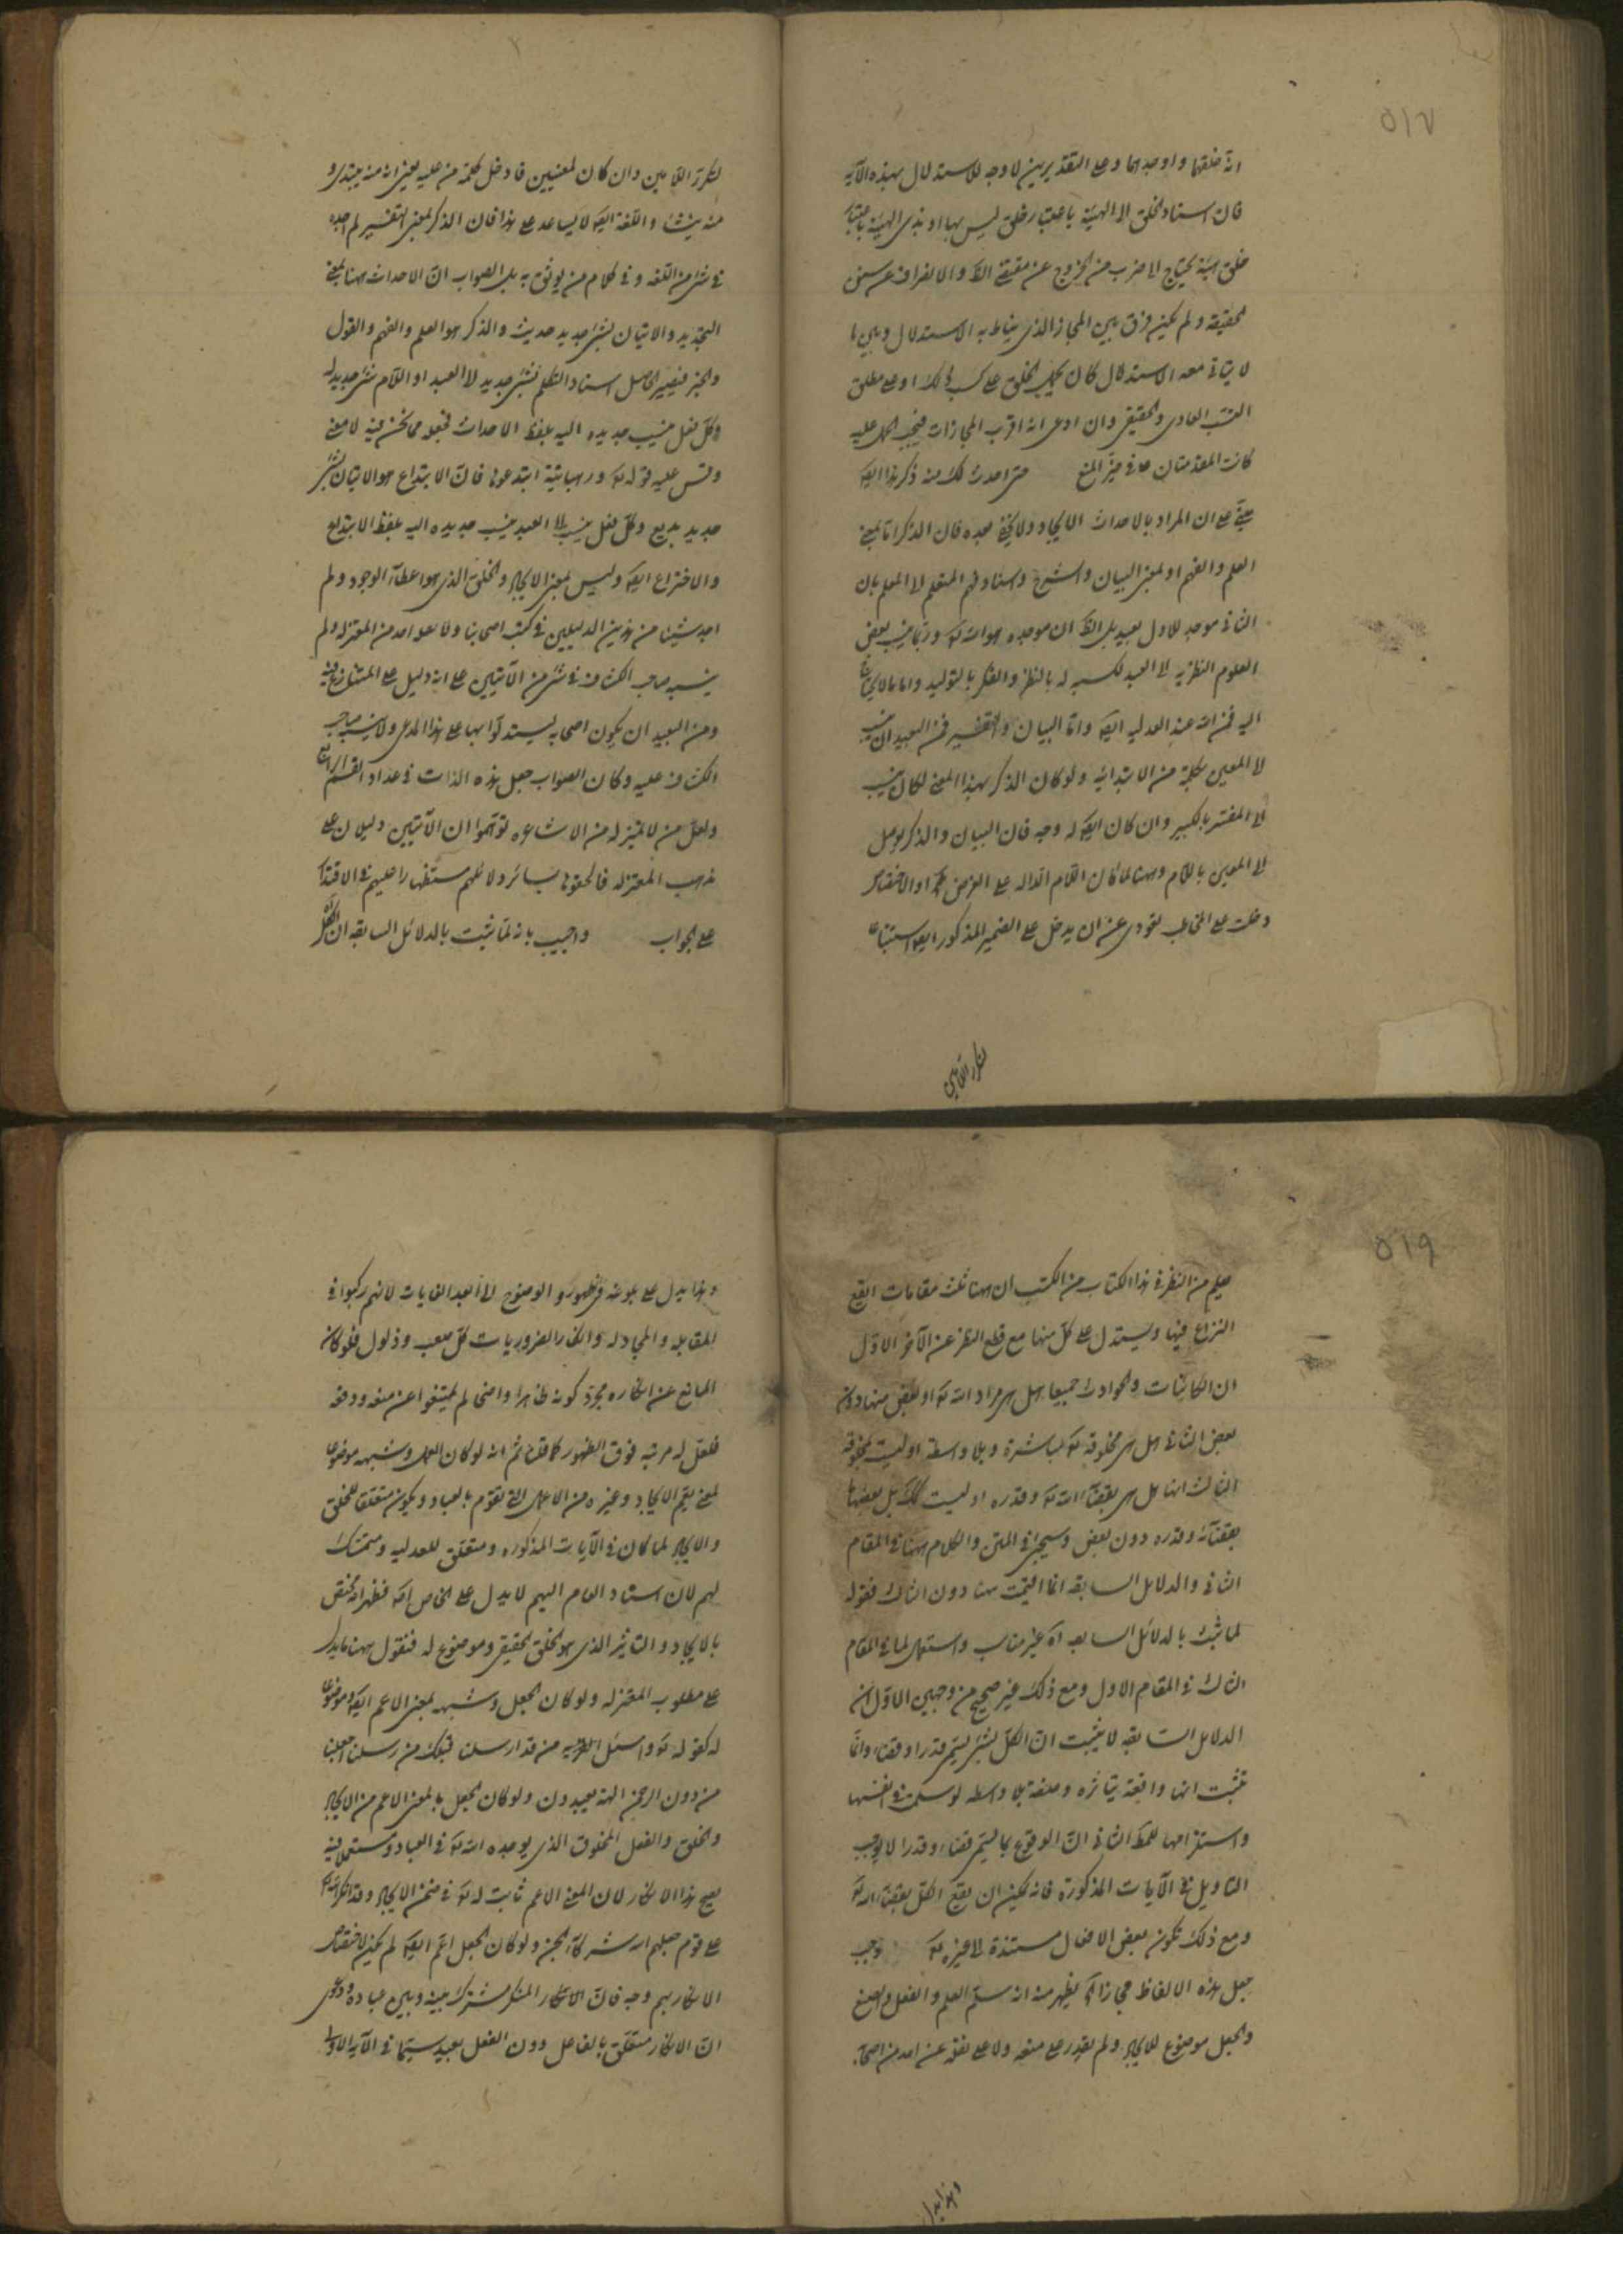 ٥١٧
انه خلقها واوجدها وعلى التقديرين لا وجه للاستدلال بهذه الآية
فان اسناد الخلق الى الهيئة باعتبار خلق ليس بها او بذى الهيئة باعتبار
خلق هيئة يحتاج الى ضرب من الخروج عن حقيقة اللفظ والانصراف عن سنن
الحقيقة ولم يكن فرق بين المجاز الذى يناط به الاستدلال وبين ما
لا ينافى معه الاستدلال كان يحمل الخلق على كسب ذلك او على مطلق
التسبب العادى والحقيقى وان ادعى انه اقرب المجازات فيجب الحمل عليه
كانت المقدمتان فى حيز المنع حتى احدث لك منه ذكر هذا ايضا
مبنى على ان المراد بالاحداث الايجاد ولا يخفى بعده فان الذكر اما بمعنى
العلم والفهم او بمعنى البيان والشرح واسناد فهم المتعلم الى المعلم بان
الثانى موجد للاول بعيد بل الظ ان موجده هو الله تع وربما ينسب بعض
العلوم النظرية الى العبد لكسبه له بالنظر والفكر بالتوليد واما ما لا يحتاج
اليه فمن الله عند العدلية ايضا واما البيان والتفسير فمن البعيد ان ينسب
الى المعين بكلمة من الابتدائية ولو كان الذكر بهذا المعنى لكان ينسب
الى المفسر بالكسر وان كان ايضا له وجه فان البيان والذكر يوصل
الى المعين باللام وههنا لما كان اللام الدالة على الغرض او الاختصاص
دخلت على المخاطب تعودى عن ان يدخل على الضمير المذكور ايضا استتباعا
لتكرر اللامين
لتكرر اللامين وان كان لمعنيين فادخل كلمة من عليه يعنى انه منه يبتدى و
منه ينشأ واللغة ايضا لا يساعد على هذا فان الذكر بمعنى التفسير لم اجده
فى شئ من اللغة وفى كلام من يوثق به بل الصواب ان الاحداث ههنا بمعنى
التجديد والاتيان بشئ جديد حديث والذكر هو العلم والفهم والقول
والخبر فيصير الحاصل اسناد التكلم بشئ جديد الى العبد او اللام شئ جديد له
وكل فعل ينسب جديده اليه بلفظ الاحداث فجعله مما نحن فيه لا معنى
وقس عليه قوله تع ورهبانية ابتدعوها فان الابتداع هو الاتيان بشئ
جديد بديع وكل فعل ينسب الى العبد ينسب جديده اليه بلفظ الابتداع
والاختراع ايضا وليس بمعنى الايجاد والخلق الذى هو اعطاء الوجود ولم
اجد شيئا من هذين الدليلين فى كتب اصحابنا ولا عن احد من المعتزلة ولم
ينسبه صاحب الكشاف فى شئ من الآيتين على انه دليل على المتنازع فيه
ومن البعيد ان يكون اصحابه يستدلوا بها على هذا المدعى ولا ينبه صاحب
الكشاف عليه وكان الصواب جعل هذه الذات فى عداد القسم الرابع
ولعل من لا تميز له من الاشاعرة توهموا ان الآيتين دليلان على
مذهب المعتزلة فالحقوها بسائر دلائلهم مستظهرا عليهم فى الاقتدار
على الجواب واجيب بانه لما ثبت بالدلائل السابقة ان الكل
٥١٩
يعلم من النظر فى هذا الكتاب من الكتب ان ههنا ثلث مقامات ايقع
النزاع فيها ويستدل على كل منها مع قطع النظر عن الآخر الاول
ان الكائنات والحوادث جميعا هل هى مراد الله تع او بعض منها دون
بعض الثانى هل هى مخلوقة له تع مباشرة وبلا واسطة او ليست بمخلوقة
الثالث انها هل هى بقضاء الله تع وقدره او ليست كك بل بعضها
بقضائه وقدره دون بعض وسيجئ فى المتن والكلام ههنا فى المقام
الثانى والدلائل السابقة انما اقيمت هنا دون الثالث فقوله
لما ثبت بالدلائل السابقة آه غير مناسب واستعمال لما فى المقام
الثالث فى المقام الاول ومع ذلك غير صحيح من وجهين الاول ان
الدلائل السابقة لا يثبت ان الكل بشئ يسمى قدرا وقضاء وانما
تثبت انها واقعة بتاثيره وخلقه بلا واسطة لو سلمت فى انفسها
واستلزامها للمط الثانى ان الوقوع بما يسمى قضاء وقدرا لا يوجب
التاويل فى الآيات المذكورة فانه يمكن ان يقع الكل بقضاء الله تع
ومع ذلك تكون بعض الافعال مستندة الى غيره تع وجب
جعل هذه الالفاظ مجازا آه يظهر منه انه سلم العلم والفعل والصنع
والجعل موضوع للايجاد ولم يقدر على منعه ولا على نقله عن احد من اصحابه
وهذا يدل
وهذا يدل على بلوغه فى ظهور والوضوح الى ابعد الغايات لانهم ركبوا فى
المقابلة والمجادلة وانكار الضروريات كل صعب وذلول فلو كان
المانع عن انكاره مجرد كونه ظاهرا واضحا لم يكتفوا عن منعه ودفعه
فلعل له مرتبة فوق الظهور كما قلنا ثم انه لو كان العمل وشبهه موضوعا
لمعنى يعم الايجاد وغيره من الاعمال التى تقوم بالعباد ويكون متعلقا للخلق
والايجاد لما كان فى الآيات المذكورة متعلق للعدلية ومتمسك
لهم لان اسناد العام اليهم لا يدل على الخاص آه فظهر انه مختص
بالايجاد والتاثير الذى هو الخلق الحقيقى وموضوع له فنقول ههنا ما يدل
على مطلوب المعتزلة ولو كان الجعل وشبهه بمعنى الاعم ايضا وموضوعا
له كقوله تع واسئل من قد ارسلنا قبلك من رسلنا اجعلنا
من دون الرحمن الهة يعبدون ولو كان الجعل بالمعنى الاعم من الايجاد
والخلق والفعل المخلوق الذى يوجده الله تع فى العباد ويستعمل فيه
يصح هذا الانكار لان المعنى الاعم ثابت له تع فى ضمن الايجاد وقد انكر الله تع
على قوم جعلهم لله شركاء الجن ولو كان الجعل اعم ايضا لم يكن لاختصاص
الانكار بهم وجه فان الانكار المنكر مشترك بينه وبين عباده ودعوى
ان الانكار متعلق بالفاعل دون الفعل بعيد سيما فى الآية الاولى